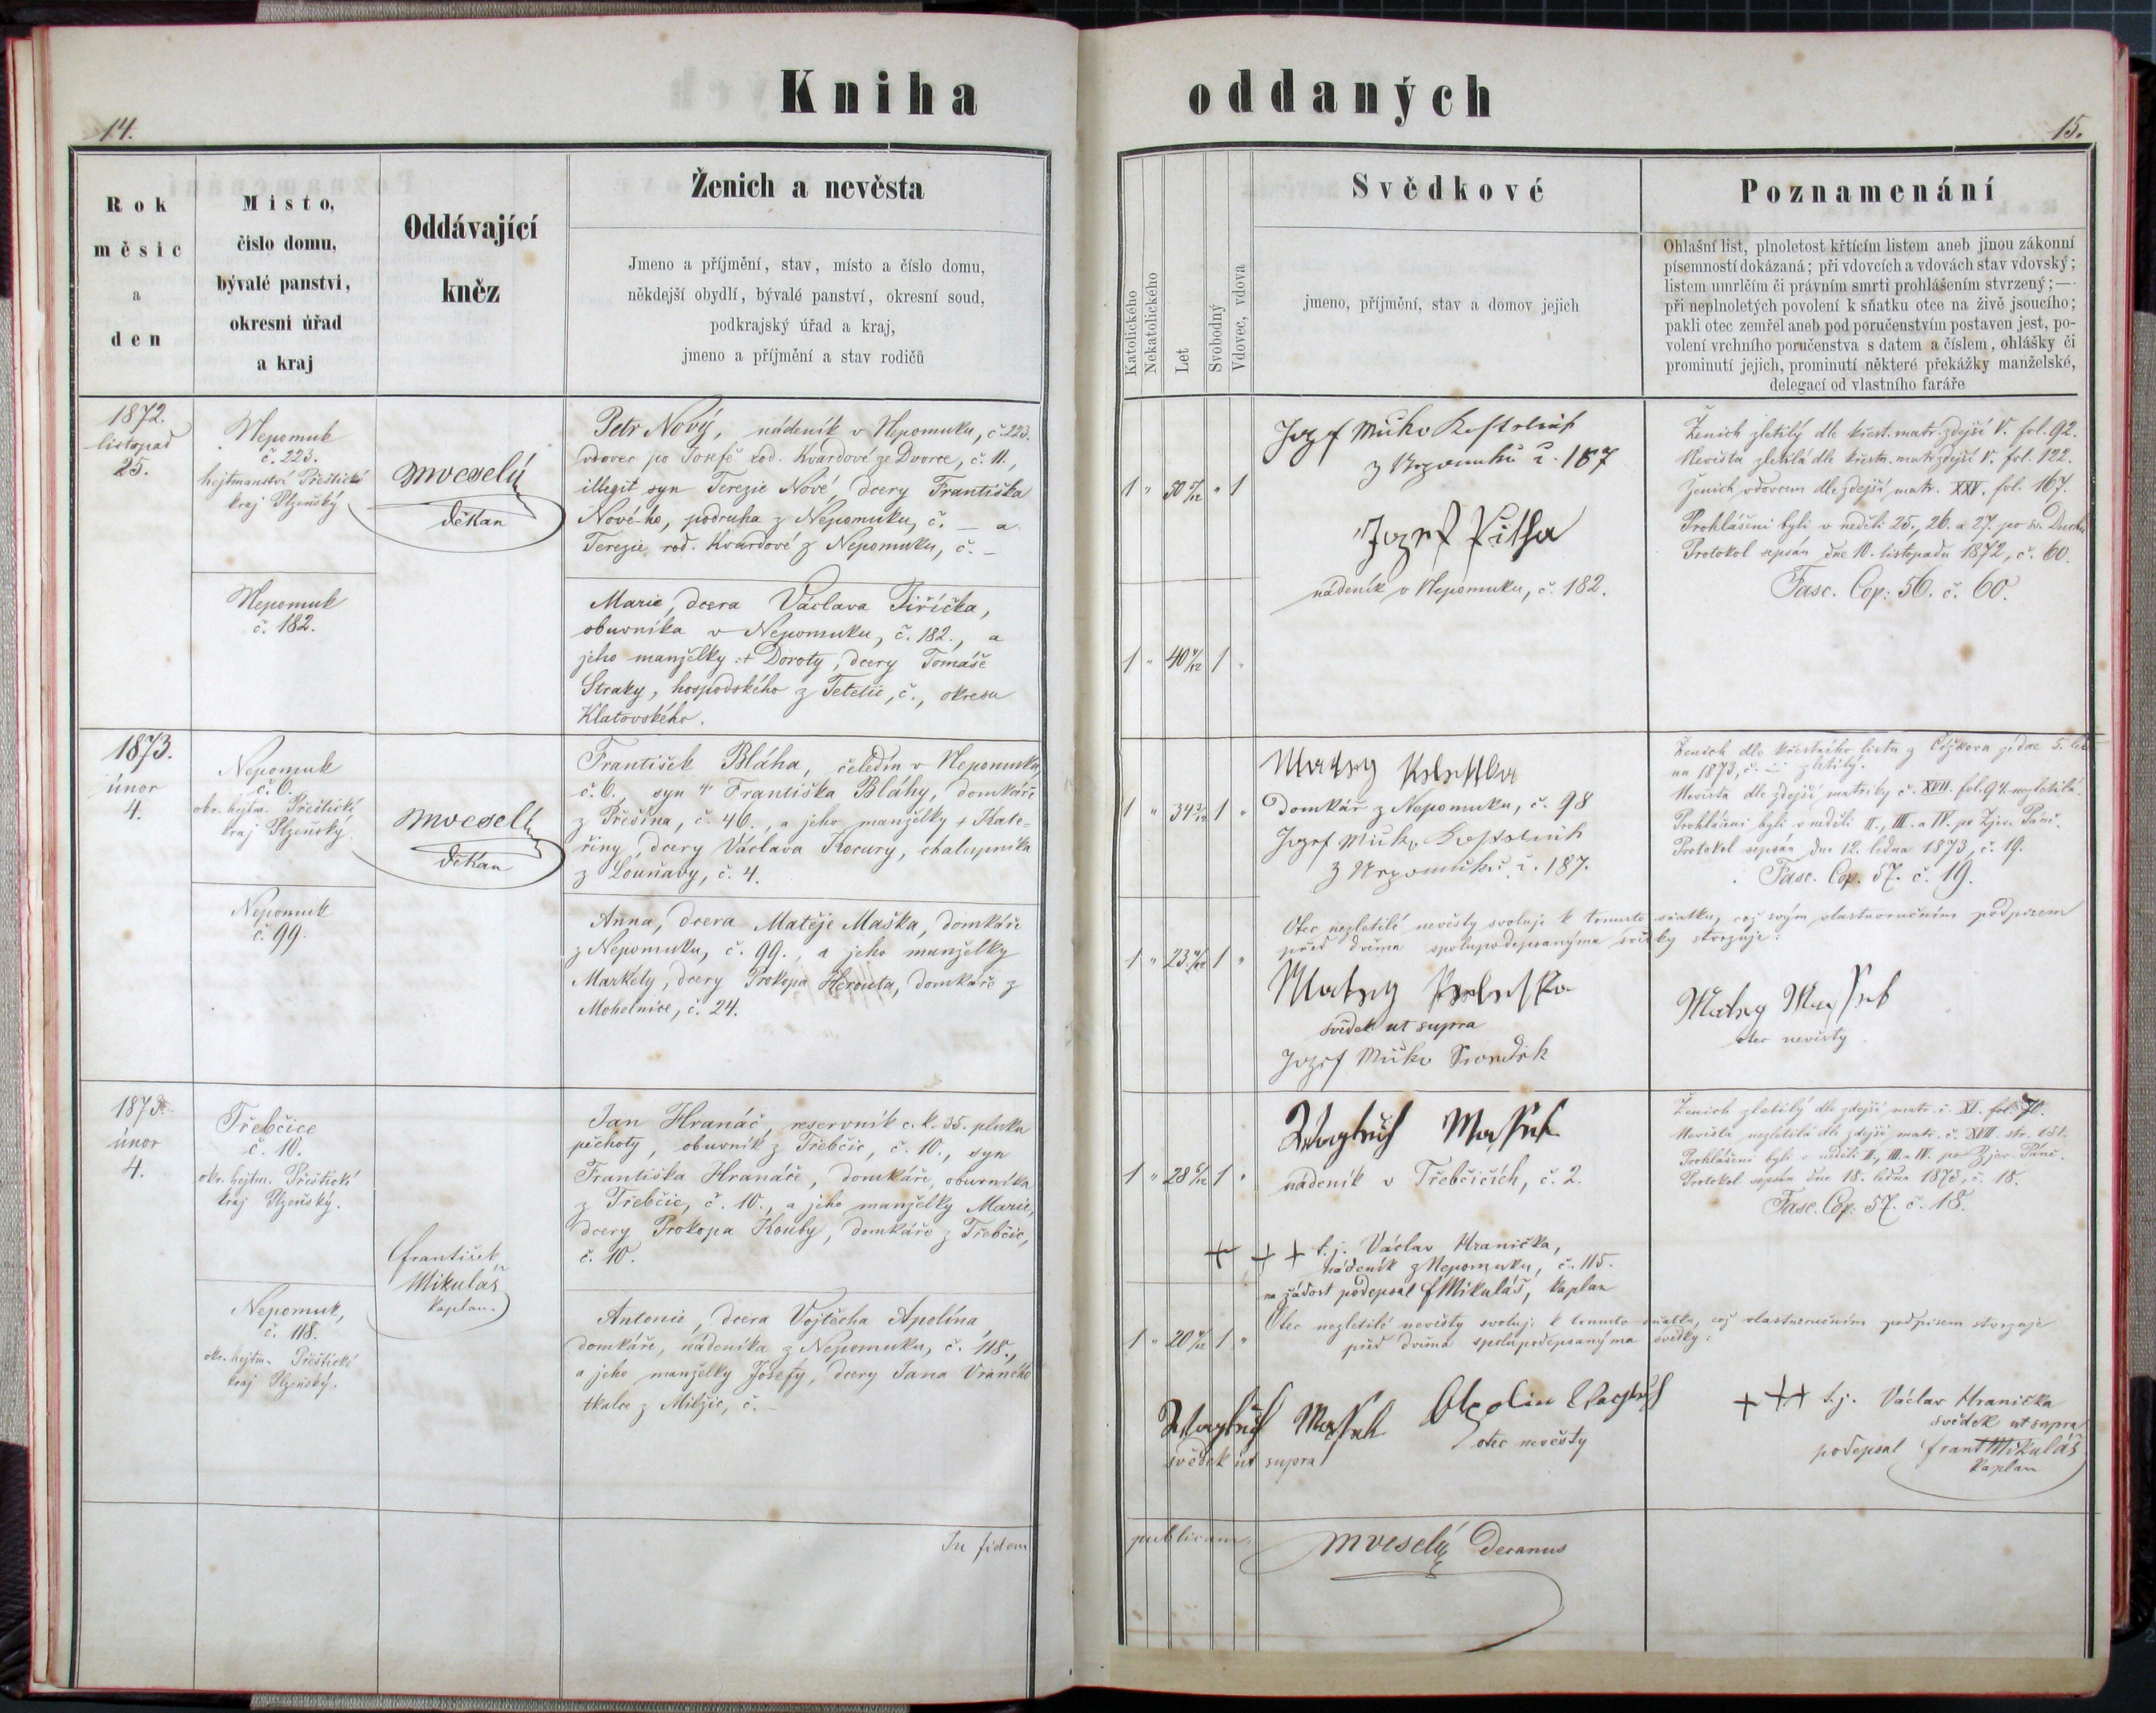 Kniha oddaných
14.
15.
Rok
měsíc
a
den
Místo,
číslo domu,
bývalé panství,
okresní úřad
a kraj
Oddávající
kněz
Ženich a nevěsta
Jmeno a příjmění, stav, místo a číslo domu,
někdejší obydlí, bývalé panství, okresní soud,
podkrajský úřad a kraj,
jmeno a příjmění a stav rodičů
Katolického
Nekatolického
Let
Svobodný
Vdovec, vdova
Svědkové
jmeno, příjmění, stav a domov jejich
Poznamenání
Ohlašní list, plnoletost křtícím listem aneb jinou zákonní
písemností dokázaná; při vdovcích a vdovách stav vdovský;
listem umrlčím či právním smrti prohlášením stvrzený;—
při neplnoletých povolení k sňatku otce na živě jsoucího;
pakli otec zemřel aneb pod poručenstvím postaven jest, po-
volení vrchního poručenstva s datem a číslem, ohlášky či
prominutí jejich, prominutí některé překážky manželské,
delegací od vlastního faráře
1872.
listopad
25.
Nepomuk
č. 223.
hejtmanství Přeštické
kraj Plzeňský
MVeselý
děkan
Petr Nový, nádeník v Nepomuku, č. 223.
vdovec po Josefě rod. Kvardové ze Dvorce, č. 11.,
illegit syn Terezie Nové, dcery Františka
Nové-ho, podruha z Nepomuku, č. — a
Terezie rod. Kvardové z Nepomuku, č. —
Nepomuk
č. 182.
Marie, dcera Václava Jiříčka,
obuvníka v Nepomuku, č. 182., a
jeho manželky + Doroty, dcery Tomáše
Straky, hospodského z Tetětic, č., okresu
Klatovského.
1 " 50 " 1
1 " 40 1 "
Jozef
z Nepomuku č. 187
Jozef
nádeník v Nepomuku, č. 182.
Ženich zletilý dle křest. matr. zdejší V. fol. 92.
Nevěsta zletilá dle křestn. matr. zdejší V. fol. 122.
Ženich vdovcem dle zdejší matr. XXV. fol. 167.
Prohlášeni byli v neděli 25., 26. a 27. po sv. Duchu
Protokol sepsán dne 10. listopadu 1872, č. 60.
Fasc. Cop: 56. č. 60.
1873.
únor
4.
Nepomuk
č. 6.
okr. hejtm. Přeštické
kraj Plzeňský
MVeselý
děkan
František Bláha, čeledín v Nepomuku,
č. 6. syn + Františka Bláhy, domkáře
z Přešína, č. 46., a jeho manželky + Kate-
řiny, dcery Václava Kocury, chalupníka
z Louňavy, č. 4.
Nepomuk
č. 99.
Anna, dcera Matěje Maška, domkáře
z Nepomuku, č. 99., a jeho manželky
Markéty, dcery Prokopa Herouta, domkáře z
Mohelnice, č. 24.
1 " 34 1 "
1 " 23 1 "
domkář z Nepomuku, č. 98
Jozef
z Nepomuku č. 187.
Ženich dle křestního listu z Čížkova
na 1873, č. — zletilý.
Nevěsta dle zdejší matriky č. XVII. fol. 94. nezletilá.
Prohlášeni byli v neděli II., III. a IV. po Zjev. Páně.
Protokol sepsán dne 12. ledna 1873, č. 19.
Fasc. Cop. 57. č. 19.
Otec nezletilé nevěsty svoluje k tomuto sňatku, což svým vlastnoručním podpisem
před dvěma spolupodepsanýma svědky stvrzuje:
svědek ut supra
Jozef
otec nevěsty
1873.
únor
4.
Třebčice
č. 10.
okr. hejtm. Přeštické
kraj Plzeňský.
František
Mikuláš
kaplan
Jan Hranáč, reservník c. k. 35. pluku
pěchoty, obuvník z Třebčic, č. 10., syn
Františka Hranáče, domkáře, obuvníka
z Třebčic, č. 10., a jeho manželky Marie,
dcery Prokopa Kouby, domkáře z Třebčic,
č. 10.
Nepomuk,
č. 118.
okr. hejtm. Přeštické
kraj Plzeňský.
Antonie, dcera Vojtěcha Apolína,
domkáře, nádeníka z Nepomuku, č. 118.,
a jeho manželky Josefy, dcery Jana Vraného
tkalce z Milžic, č. —
1 " 28 1 "
1 " 20 1 "
nádeník v Třebčicích, č. 2.
+ + + t. j. Václav Hranička,
nádeník z Nepomuku, č. 115.
na žádost podepsal fMikuláš, kaplan
Ženich zletilý dle zdejší matr. č. XI. fol. 70.
Nevěsta nezletilá dle zdejší matr. č. XVII. str. 181.
Prohlášeni byli v neděli II., III. a IV. po Zjev. Páně.
Protokol sepsán dne 18. ledna 1873, č. 18.
Fasc. Cop: 57. č. 18.
Otec nezletilé nevěsty svoluje k tomuto sňatku, což vlastnoručním podpisem stvrzuje
před dvěma spolupodepsanýma svědky:
svědek ut supra
Apolin
otec nevěsty
+++ t. j. Václav Hranička
svědek ut supra
podepsal frant Mikuláš
kaplan
In fidem publicam.
MVeselý Decanus